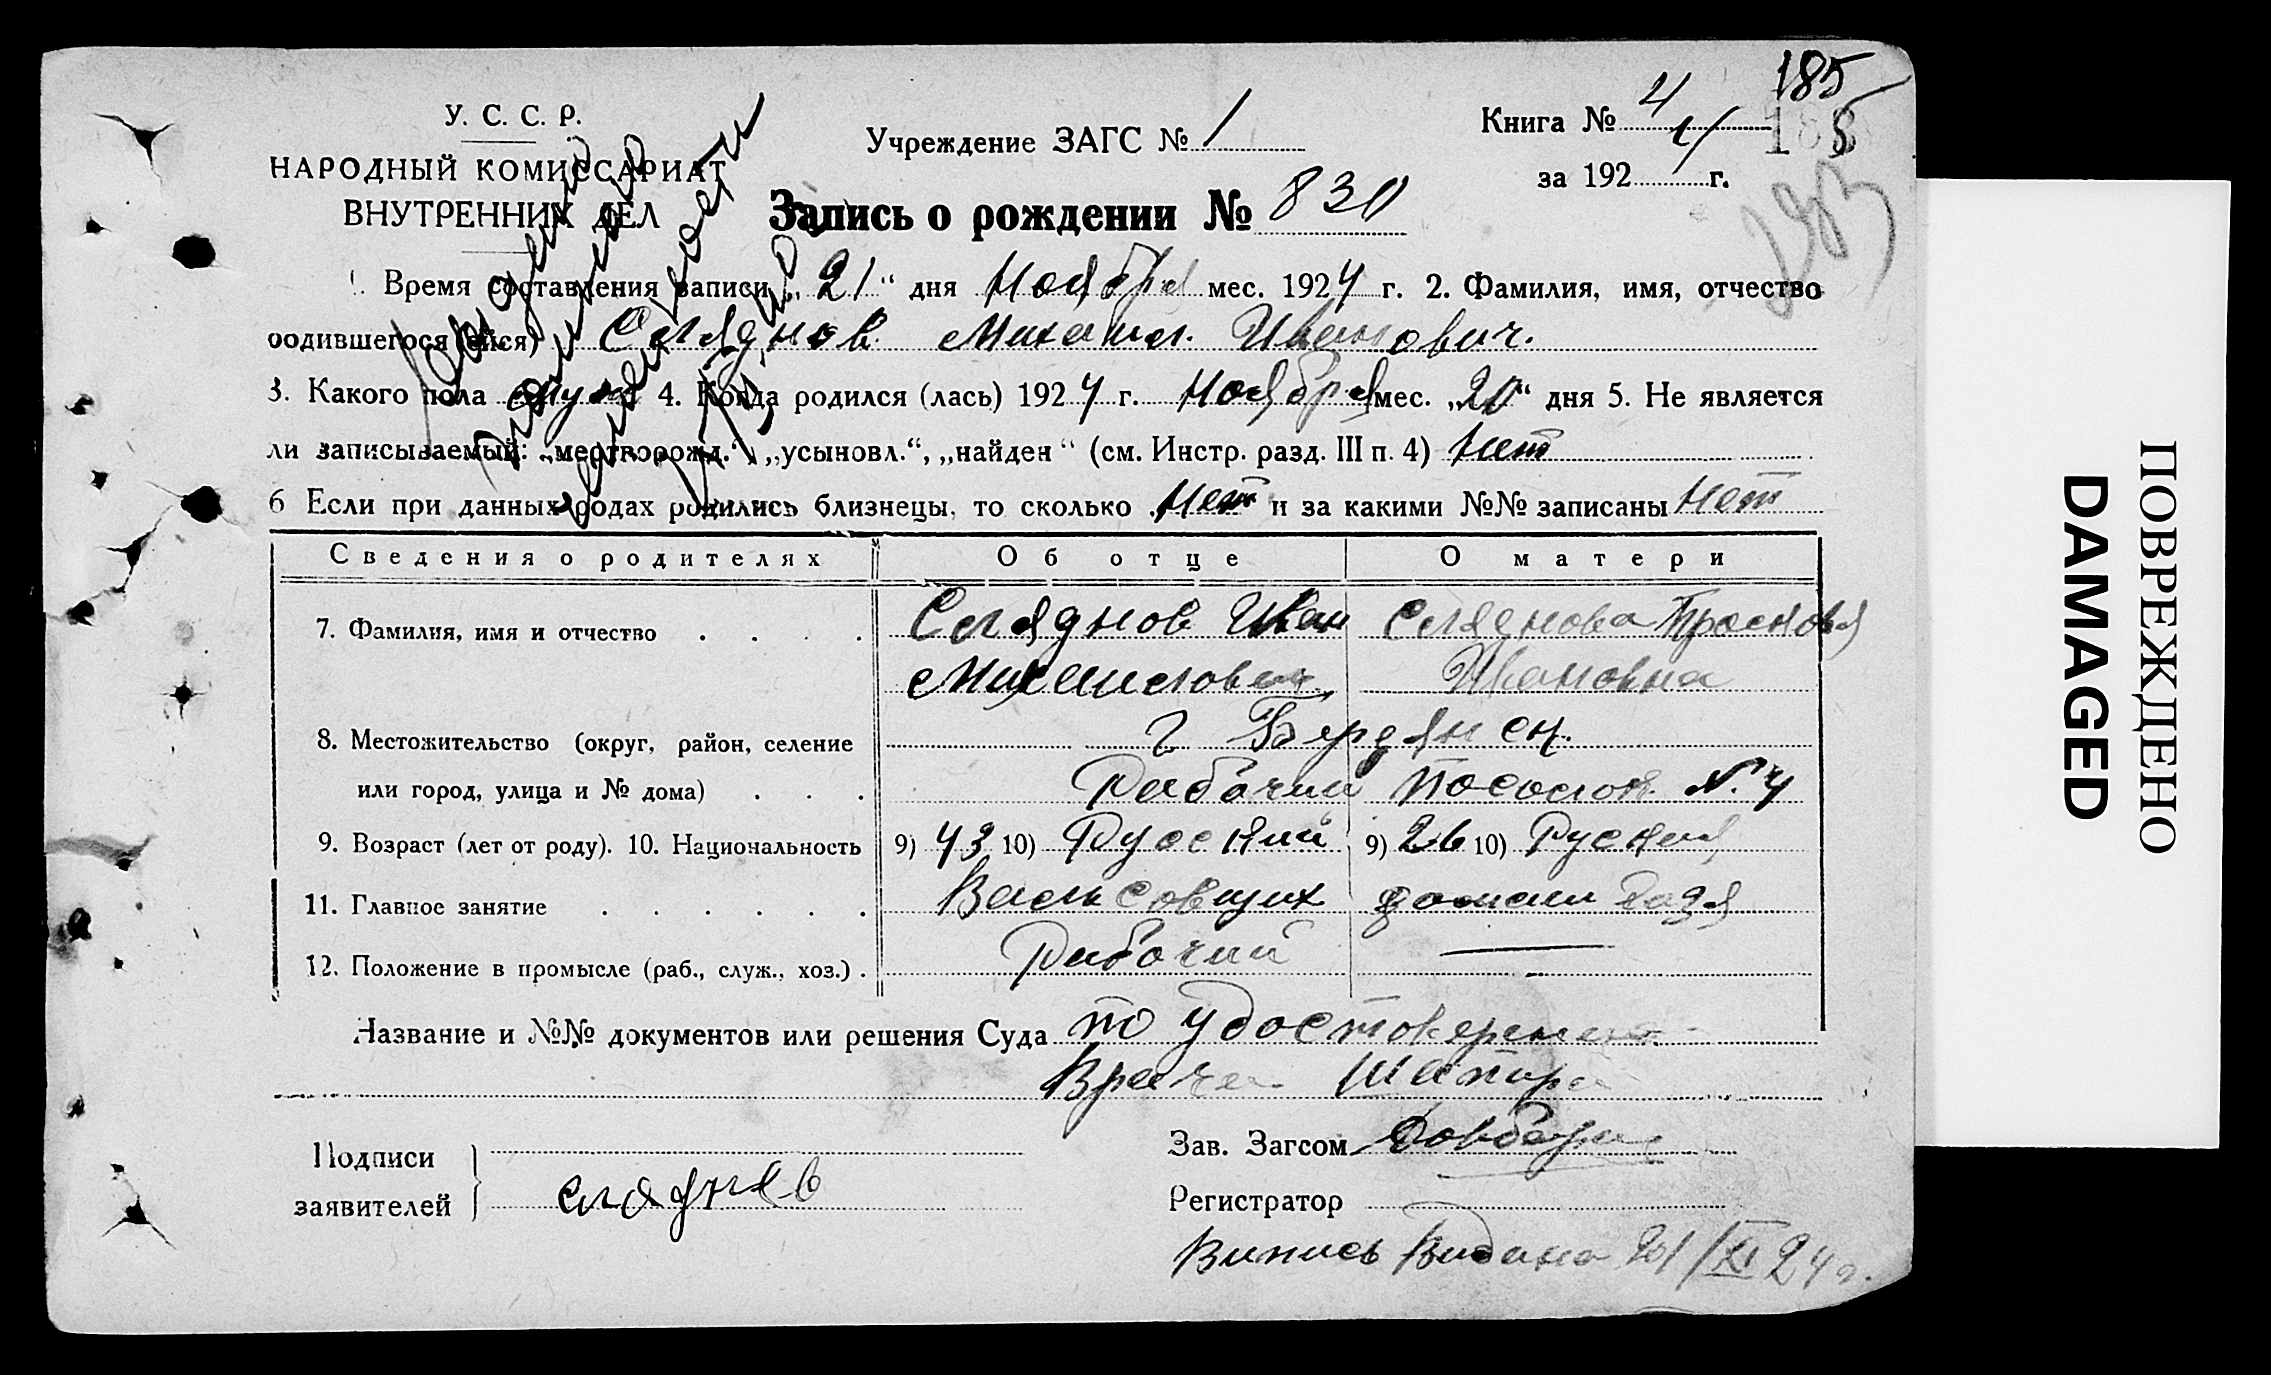 185
У. С. С. Р.
НАРОДНЫЙ КОМИССАРИАТ
ВНУТРЕННИХ ДЕЛ
Учреждение ЗАГС № 1
Книга № 4
за 1924 г.
Запись о рождении № 830
1. Время составления записи „21“ дня Ноября мес. 1924 г. 2. Фамилия, имя, отчество
родившегося (ейся) Сляднов Михаил Иванович.
3. Какого пола муж 4. Когда родился (лась) 1924 г. Ноября мес. „20“ дня 5. Не является
ли записываемый: „мертворожд.“, „усыновл.“, „найден“ (см. Инстр. разд. III п. 4) Нет
6 Если при данных родах родились близнецы, то сколько Нет и за какими №№ записаны Нет
Сведения о родителях Об отце О матери
7. Фамилия, имя и отчество . . . . Сляднов Иван Сляднова Прасковя
Михаилович Ивановна
8. Местожительство (округ, район, селение г Бердянск.
или город, улица и № дома) . . . Рабочий Поселок № 4
9. Возраст (лет от роду). 10. Национальность 9) 43 10) Русский 9) 26 10) Руская
11. Главное занятие . . . . . . Вальсовщик
12. Положение в промысле (раб., служ., хоз.) . Рабочий —
Название и №№ документов или решения Суда по удостоверению
Врача Шапиро
Подписи
заявителей
сляднев
Зав. Загсом
Регистратор
Випись Видана 21/XI 24 г.
ПОВРЕЖДЕНО
DAMAGED